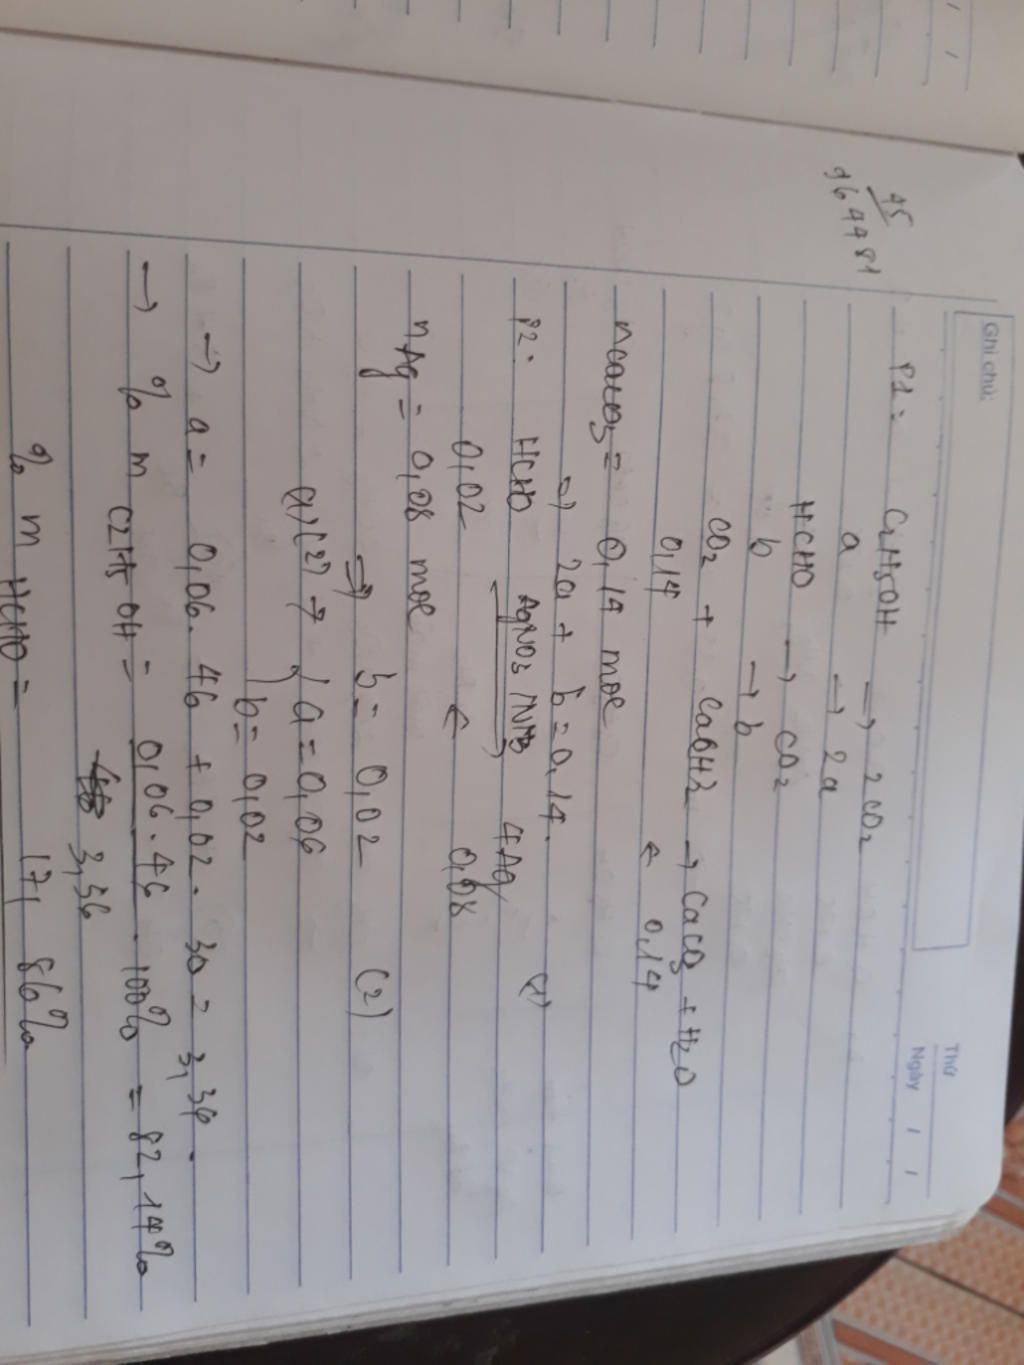 Ghi chú:
Thứ
Ngày / /
45
P1: C2H5OH → 2CO2
a → 2a
HCHO → CO2
b → b
CO2 + CaOH2 → CaCO3 + H2O
0,14 ← 0,14
nCaCO3 = 0,14 mol
=) 2a + b = 0,14. (1)
P2. HCHO AgNO3/NH3 → 4Ag
0,02 ← 0,08
nAg = 0,08 mol
⇒ b = 0,02 (2)
(1)(2) → { a = 0,06
b = 0,02
→ a = 0,06. 46 + 0,02. 30 = 3,36.
→ % m C2H5OH = 0,06. 46 . 100% = 82,14%
3,36
% m HCHO = 17,86%